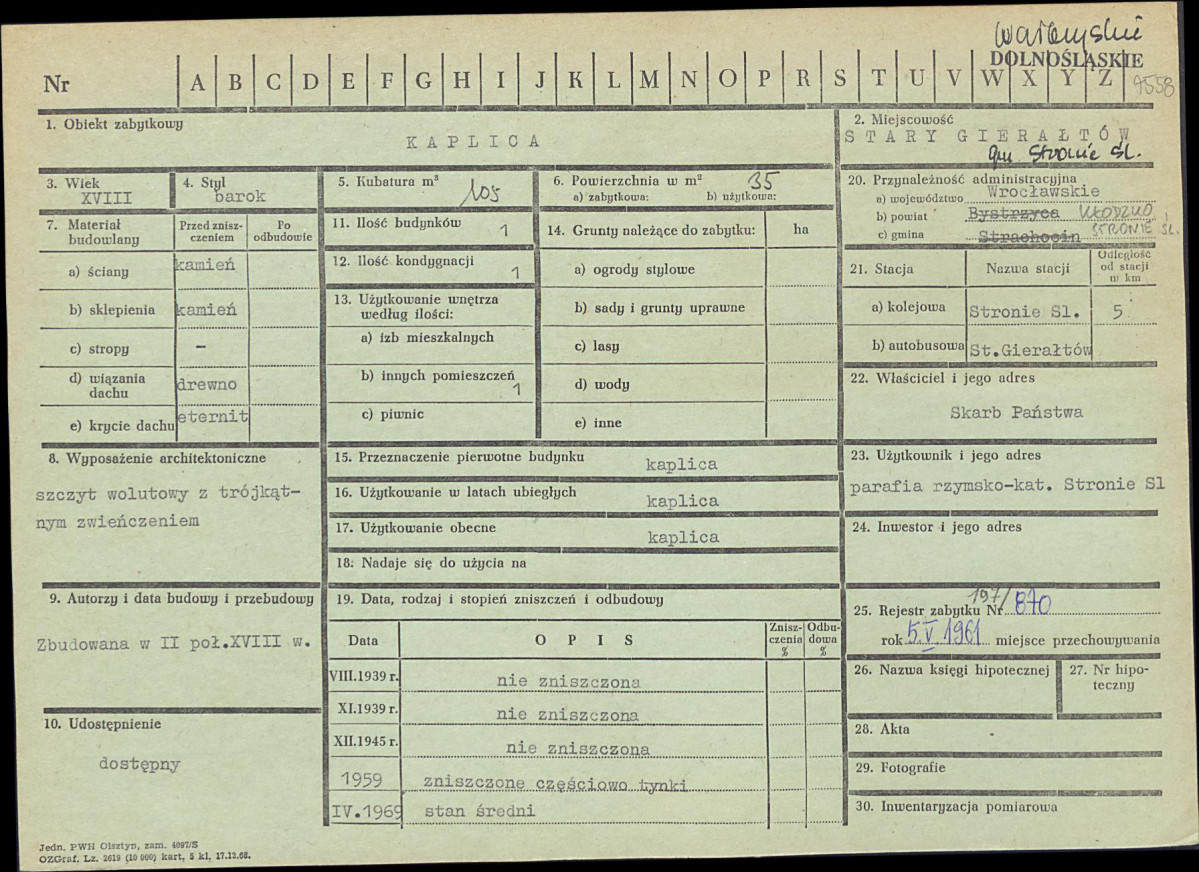 wałbrzyskie
DOLNOŚLĄSKIE
Nr A B C D E F G H I J K L M N O P R S T U V W X Y Z
9558
1. Obiekt zabytkowy
KAPLICA
2. Miejscowość
STARY GIERAŁTÓW
gm Stronie Śl.
3. Wiek
XVIII
4. Styl
barok
5. Kubatura m³
105
6. Powierzchnia w m² 35
a) zabytkowa: b) użytkowa:
20. Przynależność administracyjna
a) województwo Wrocławskie
b) powiat Bystrzyca KŁODZKO
c) gmina Strachocin STRONIE ŚL.
7. Materiał budowlany
Przed zniszczeniem
Po odbudowie
a) ściany kamień
b) sklepienia kamień
c) stropy –
d) wiązania dachu drewno
e) krycie dachu eternit
11. Ilość budynków 1
12. Ilość kondygnacji 1
13. Użytkowanie wnętrza
według ilości:
a) izb mieszkalnych
b) innych pomieszczeń 1
c) piwnic
14. Grunty należące do zabytku: ha
a) ogrody stylowe
b) sady i grunty uprawne
c) lasy
d) wody
e) inne
21. Stacja Nazwa stacji Odległość od stacji w km
a) kolejowa Stronie Sl. 5
b) autobusowa St.Gierałtów
22. Właściciel i jego adres
Skarb Państwa
8. Wyposażenie architektoniczne
szczyt wolutowy z trójkąt-
nym zwieńczeniem
15. Przeznaczenie pierwotne budynku kaplica
16. Użytkowanie w latach ubiegłych kaplica
17. Użytkowanie obecne kaplica
18. Nadaje się do użycia na
23. Użytkownik i jego adres
parafia rzymsko-kat. Stronie Sl
24. Inwestor i jego adres
9. Autorzy i data budowy i przebudowy
Zbudowana w II poł.XVIII w.
10. Udostępnienie
dostępny
19. Data, rodzaj i stopień zniszczeń i odbudowy
Data OPIS Zniszczenia % Odbudowa %
VIII.1939 r. nie zniszczona
XI.1939 r. nie zniszczona
XII.1945 r. nie zniszczona
1959 zniszczone częściowo tynki
IV.1969 stan średni
25. Rejestr zabytku Nr 197/870
rok 5.V 1961 miejsce przechowywania
26. Nazwa księgi hipotecznej
27. Nr hipo-
teczny
28. Akta
29. Fotografie
30. Inwentaryzacja pomiarowa
Jedn. PWH Olsztyn, zam. 4097/S
OZGraf. Lz. 2619 (10 000) kart, 5 kl, 17.12.68.